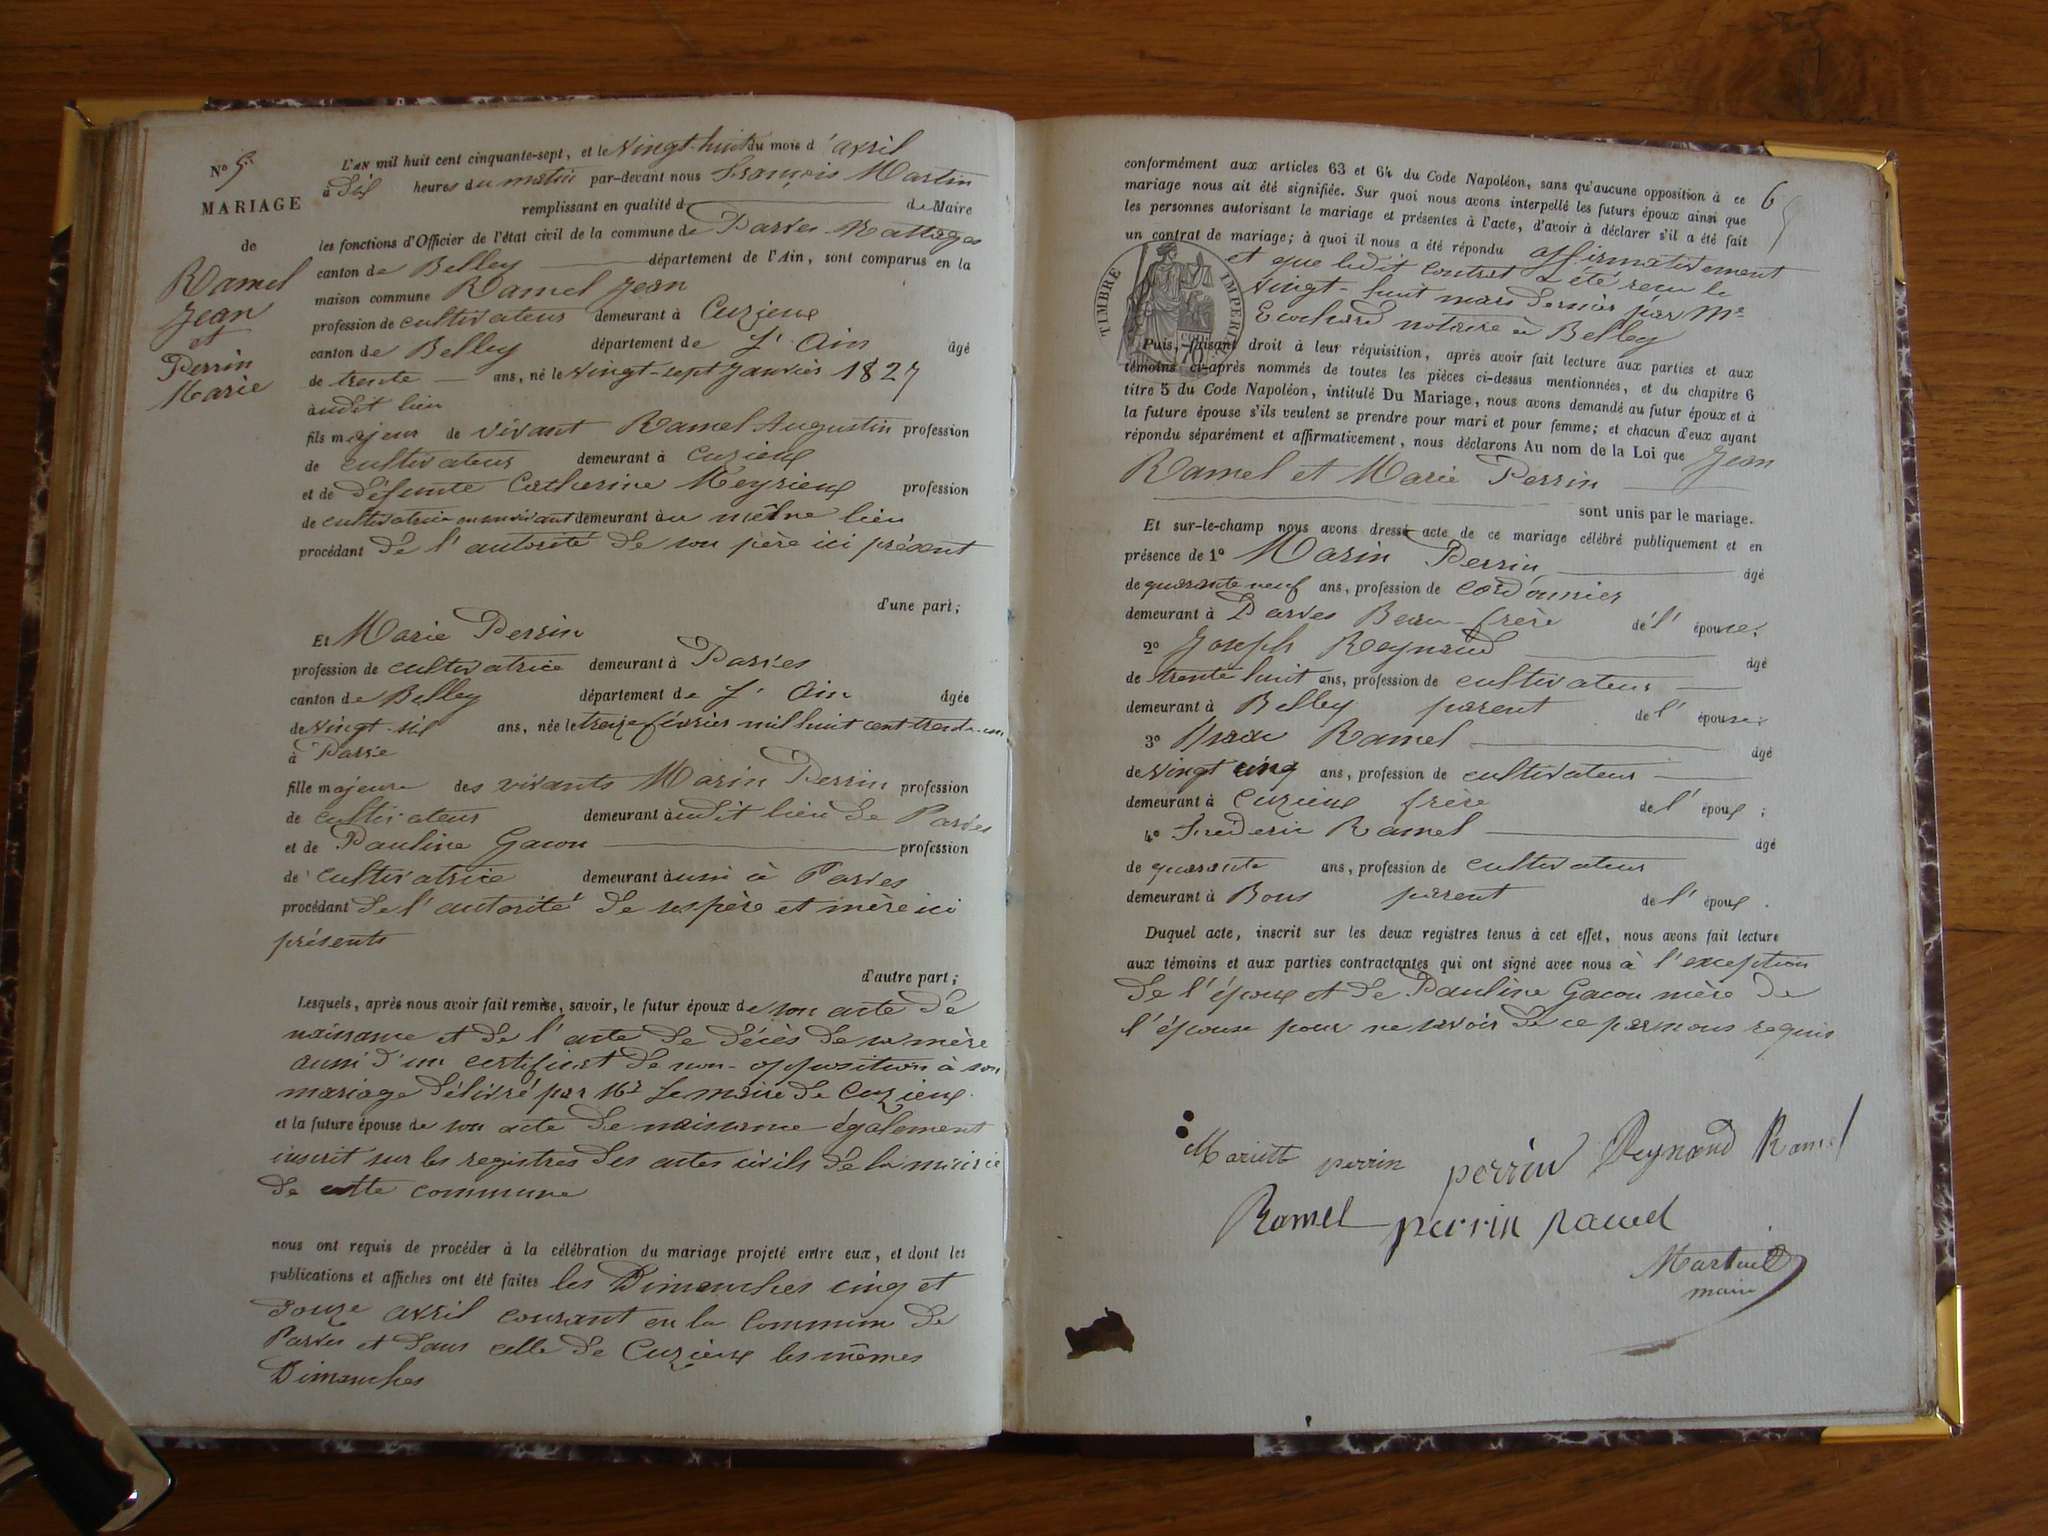 N° 5
MARIAGE
de
Ramel
Jean
et
Perrin
Marie
L'AN mil huit cent cinquante-sept, et le Vingt-huit du mois d'avril
à dix heures du matin par-devant nous François Martin
remplissant en qualité d de Maire
les fonctions d'Officier de l'état civil de la commune de Parves Nattages
canton de Belley département de l'Ain, sont comparus en la
maison commune Ramel Jean
profession de cultivateur demeurant à Cuzieux
canton de Belley département de l'Ain âgé
de trente ans, né le Vingt-sept Janvier 1827
audit lieu
fils majeur de vivant Ramel Augustin profession
de cultivateur demeurant à Cuzieux
et de défunte Catherine Meyrieux profession
de cultivatrice en son vivant demeurant au même lieu
procédant de l'autorité de son père ici présent
d'une part;
Et Marie Perrin
profession de cultivatrice demeurant à Parves
canton de Belley département de l'Ain âgée
de Vingt-six ans, née le treize février mil huit cent trente-un
à Parve
fille majeure des vivants Marin Perrin profession
de cultivateur demeurant audit lieu de Parves
et de Pauline Gacon profession
de cultivatrice demeurant aussi à Parves
procédant de l'autorité de ses père et mère ici
présents
d'autre part;
Lesquels, après nous avoir fait remise, savoir, le futur époux de son acte de
naissance et de l'acte de décès de sa mère
aussi d'un certificat de non-opposition à son
mariage délivré par Mr le maire de Cuzieux
et la future épouse de son acte de naissance également
inscrit sur les registres des actes civils de la mairie
de cette commune
nous ont requis de procéder à la célébration du mariage projeté entre eux, et dont les
publications et affiches ont été faites les Dimanches cinq et
douze avril courant en la commune de
Parves et dans celle de Cuzieux les mêmes
Dimanches
conformément aux articles 63 et 64 du Code Napoléon, sans qu'aucune opposition à ce
mariage nous ait été signifiée. Sur quoi nous avons interpellé les futurs époux ainsi que
les personnes autorisant le mariage et présentes à l'acte, d'avoir à déclarer s'il a été fait
un contrat de mariage; à quoi il nous a été répondu affirmativement
et que ledit contrat a été reçu le
vingt-huit mars dernier par Me
Ecochard notaire à Belley
6
TIMBRE IMPERI
Puis, faisant droit à leur réquisition, après avoir fait lecture aux parties et aux
témoins ci-après nommés de toutes les pièces ci-dessus mentionnées, et du chapitre 6
titre 5 du Code Napoléon, intitulé Du Mariage, nous avons demandé au futur époux et à
la future épouse s'ils veulent se prendre pour mari et pour femme; et chacun d'eux ayant
répondu séparément et affirmativement, nous déclarons Au nom de la Loi que Jean
Ramel et Marie Perrin
sont unis par le mariage.
Et sur-le-champ nous avons dressé acte de ce mariage célébré publiquement et en
présence de 1° Marin Perrin âgé
de quarante neuf ans, profession de cordonnier
demeurant à Parves Beau-frère de l'épouse;
2° Joseph Reynaud âgé
de trente huit ans, profession de cultivateur
demeurant à Belley parent de l'épouse;
3° Ramel âgé
de Vingt cinq ans, profession de cultivateur
demeurant à Cuzieux frère de l'époux;
4° Frederic Ramel âgé
de quarante ans, profession de cultivateur
demeurant à Bons parent de l'époux.
Duquel acte, inscrit sur les deux registres tenus à cet effet, nous avons fait lecture
aux témoins et aux parties contractantes qui ont signé avec nous à l'exception
de l'époux et de Pauline Gacon mère de
l'épouse pour ne savoir de ce par nous requis
Mariette perrin perrin Reynaud Ramel
Ramel perrin ramel
Martin
maire